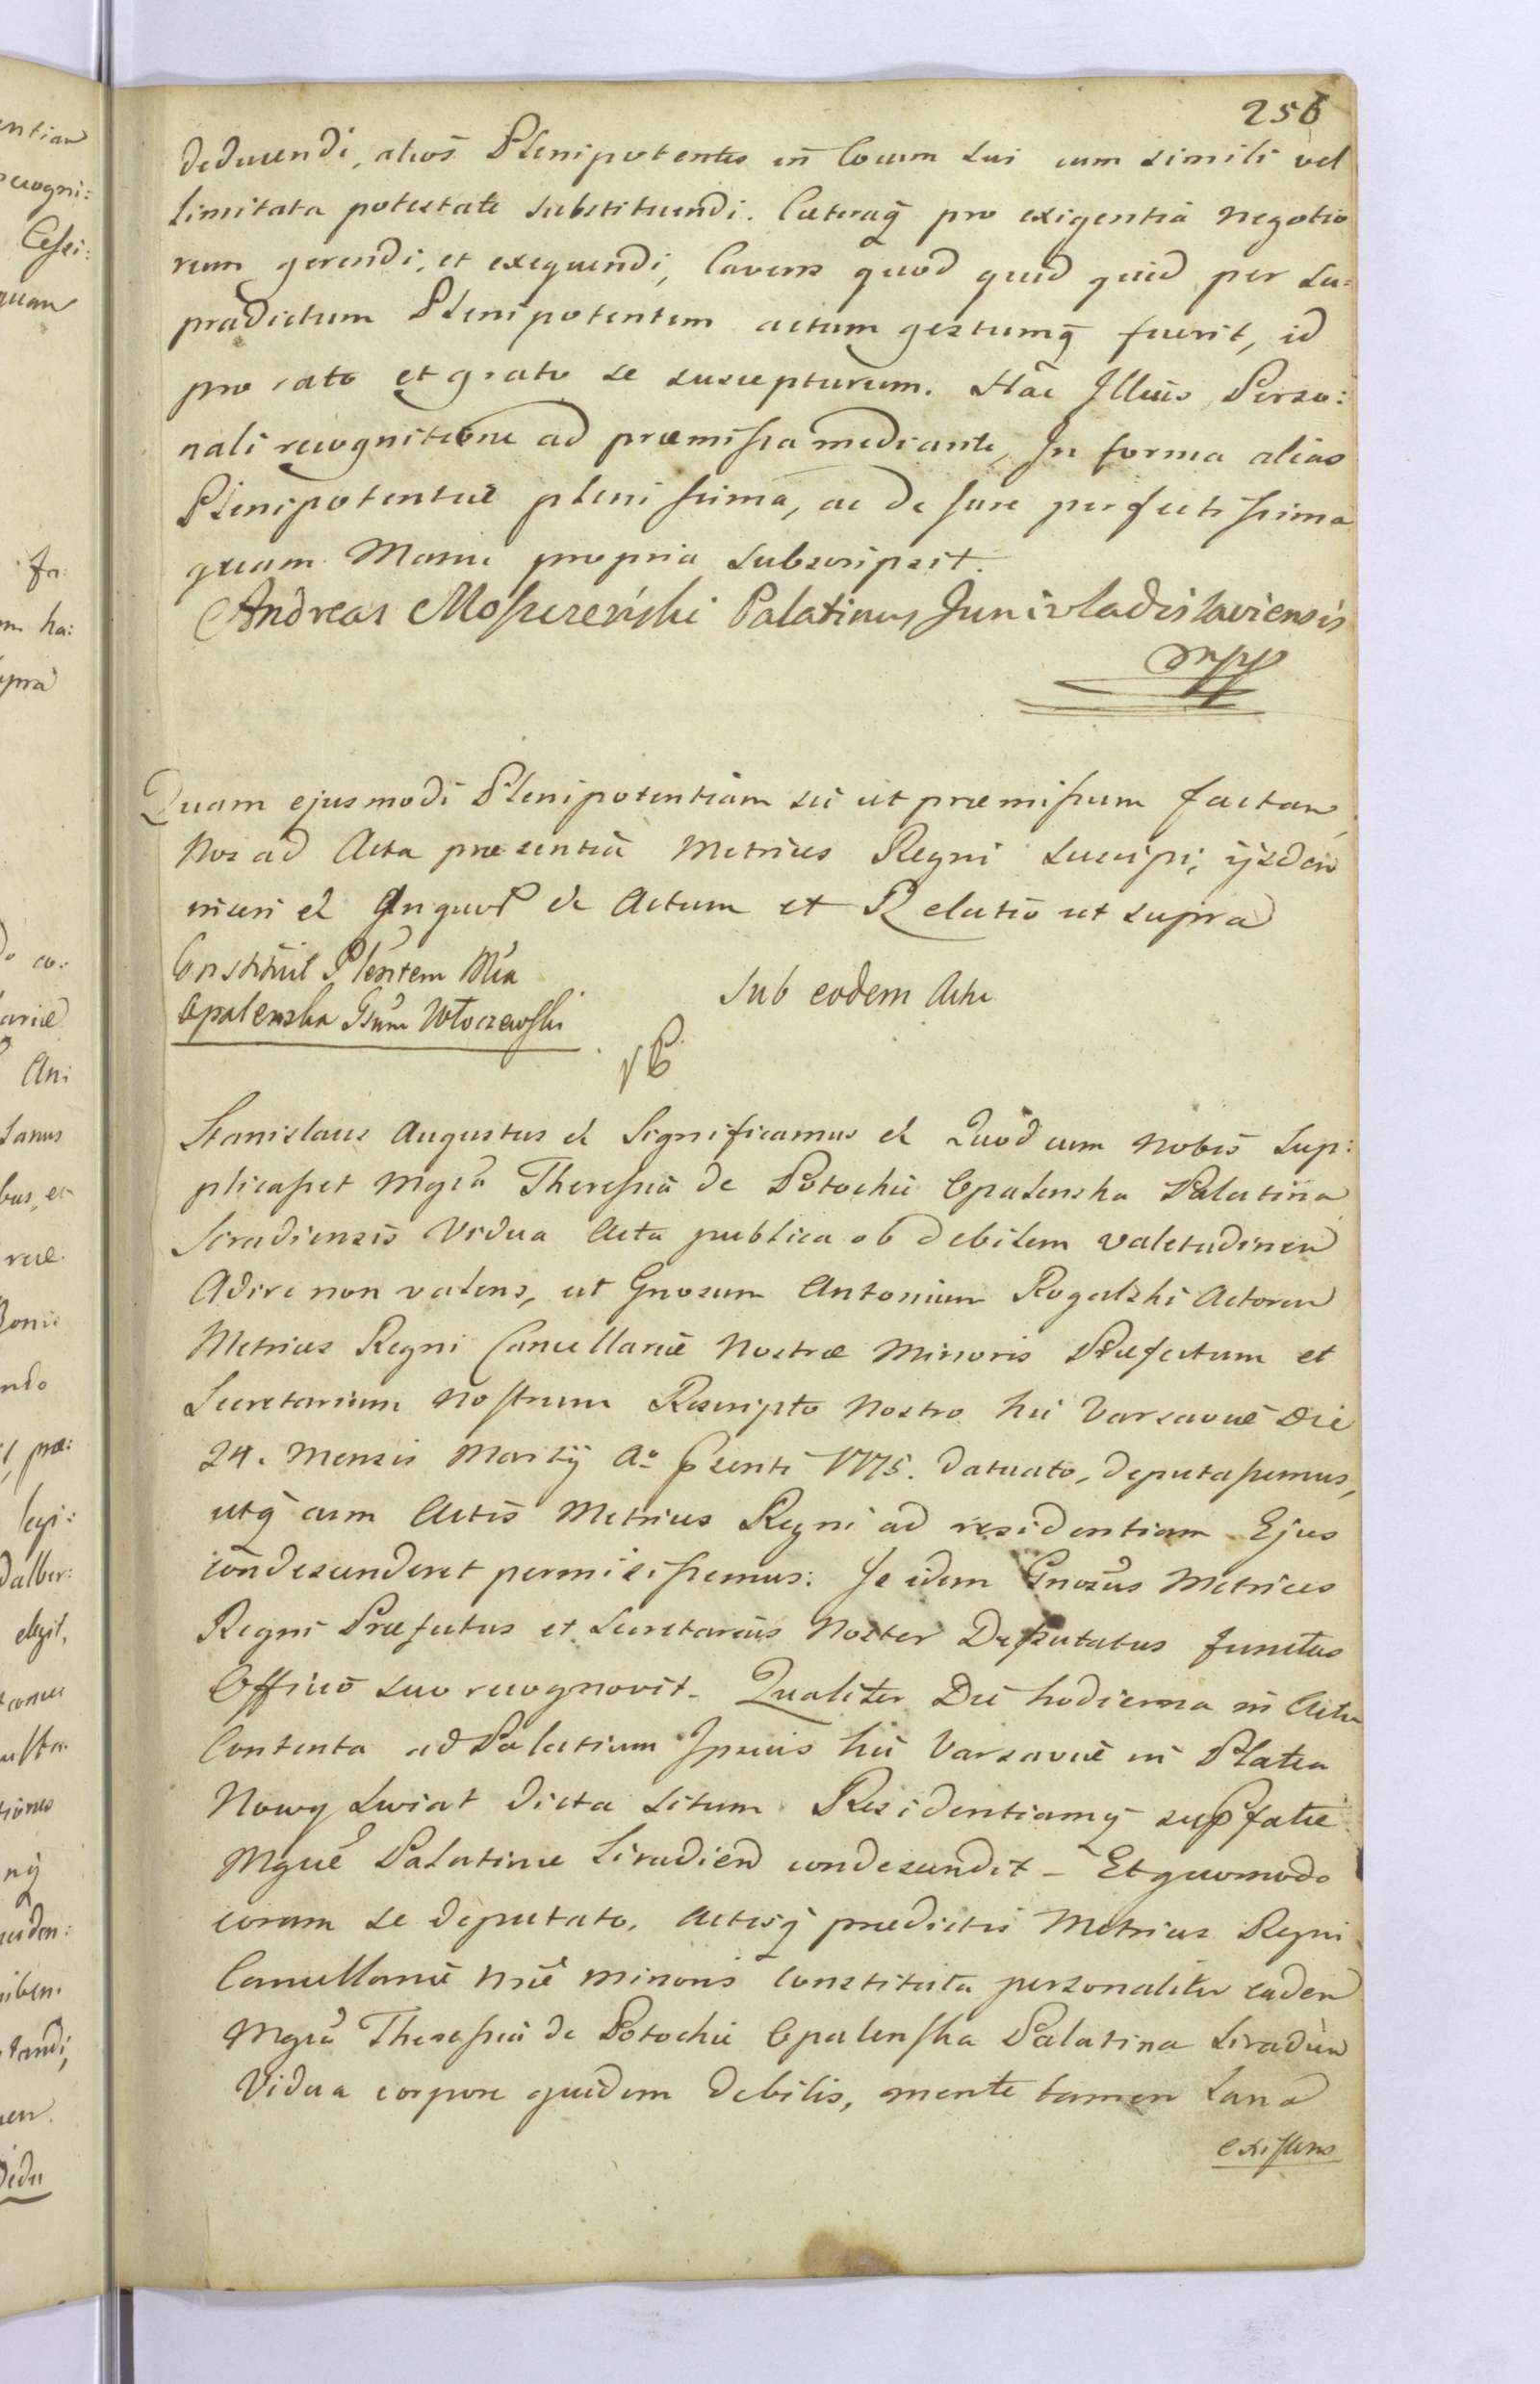 256
deducendi, alios Plenipotentes in locum sui cum simili vel
limitata potestate substituendi. Cæteraq pro exigentia negotio
rum gerendi, et exequendi, Cavens quod quid quid per su=
prædictum Plenipotentem actum gestumq fuerit, id
pro rato et grato se suscepturum. Hac Illius Perso:
nali recognitione ad præmissa mediante, In forma alias
Plenipotentiæ plenissima, ac de Jure perfectissima
quam Manu propria subscripsit.
Andreas Moszczeński Palatinus Junivladislaviensis
mpp
Quam ejusmodi Plenipotentiam sic ut præmissum factam
Nos ad Acta præsentia Metrices Regni suscipi, ijsdem
inseri et Inquor de Actum et Relatio ut supra
Constituit Plentem Mca
Opalenska Gsum Włoczewski
Sub eodem Actu
Stanislaus Augustus et Significamus et Quod cum nobis sup:
plicasset Mgca Theressia de Potockie Opalenska Palatina
Siradiensis Vidua Acta publica ob debilem valetudinem
Adire non valens, ut Gnosum Antonium Rogalski Actorum
Metrices Regni Cancellariæ Nostræ Minoris Præfectum et
Secretarium nostrum Rescripto Nostro hic Varsaviæ Die
24. Mensis Martij Ao psenti 1775. datuato, deputassemus,
utq cum Actis Metrices Regni ad residentiam Ejus
condescenderet permisissemus: Is idem Gnosus Metrices
Regni Præfectus et Secretarius Noster Deputatus functus
Officio suo recognovit. Qualiter Die hodierna in Actu
Contenta ad Palatium Ipsius hic Varsaviæ in Platea
Nowy Swiat dicta situm Residentiamq supfatæ
Mgcæ Palatinæ Siradien condescendit – Et quomodo
coram se deputato, Actisq prædictis Metrices Regni
Cancellariæ Nræ minoris constituta personaliter eadem
Mgca Theressia de Potockie Opalenska Palatina Siradien
Vidua corpore quidem debilis, mente tamen sana
existens